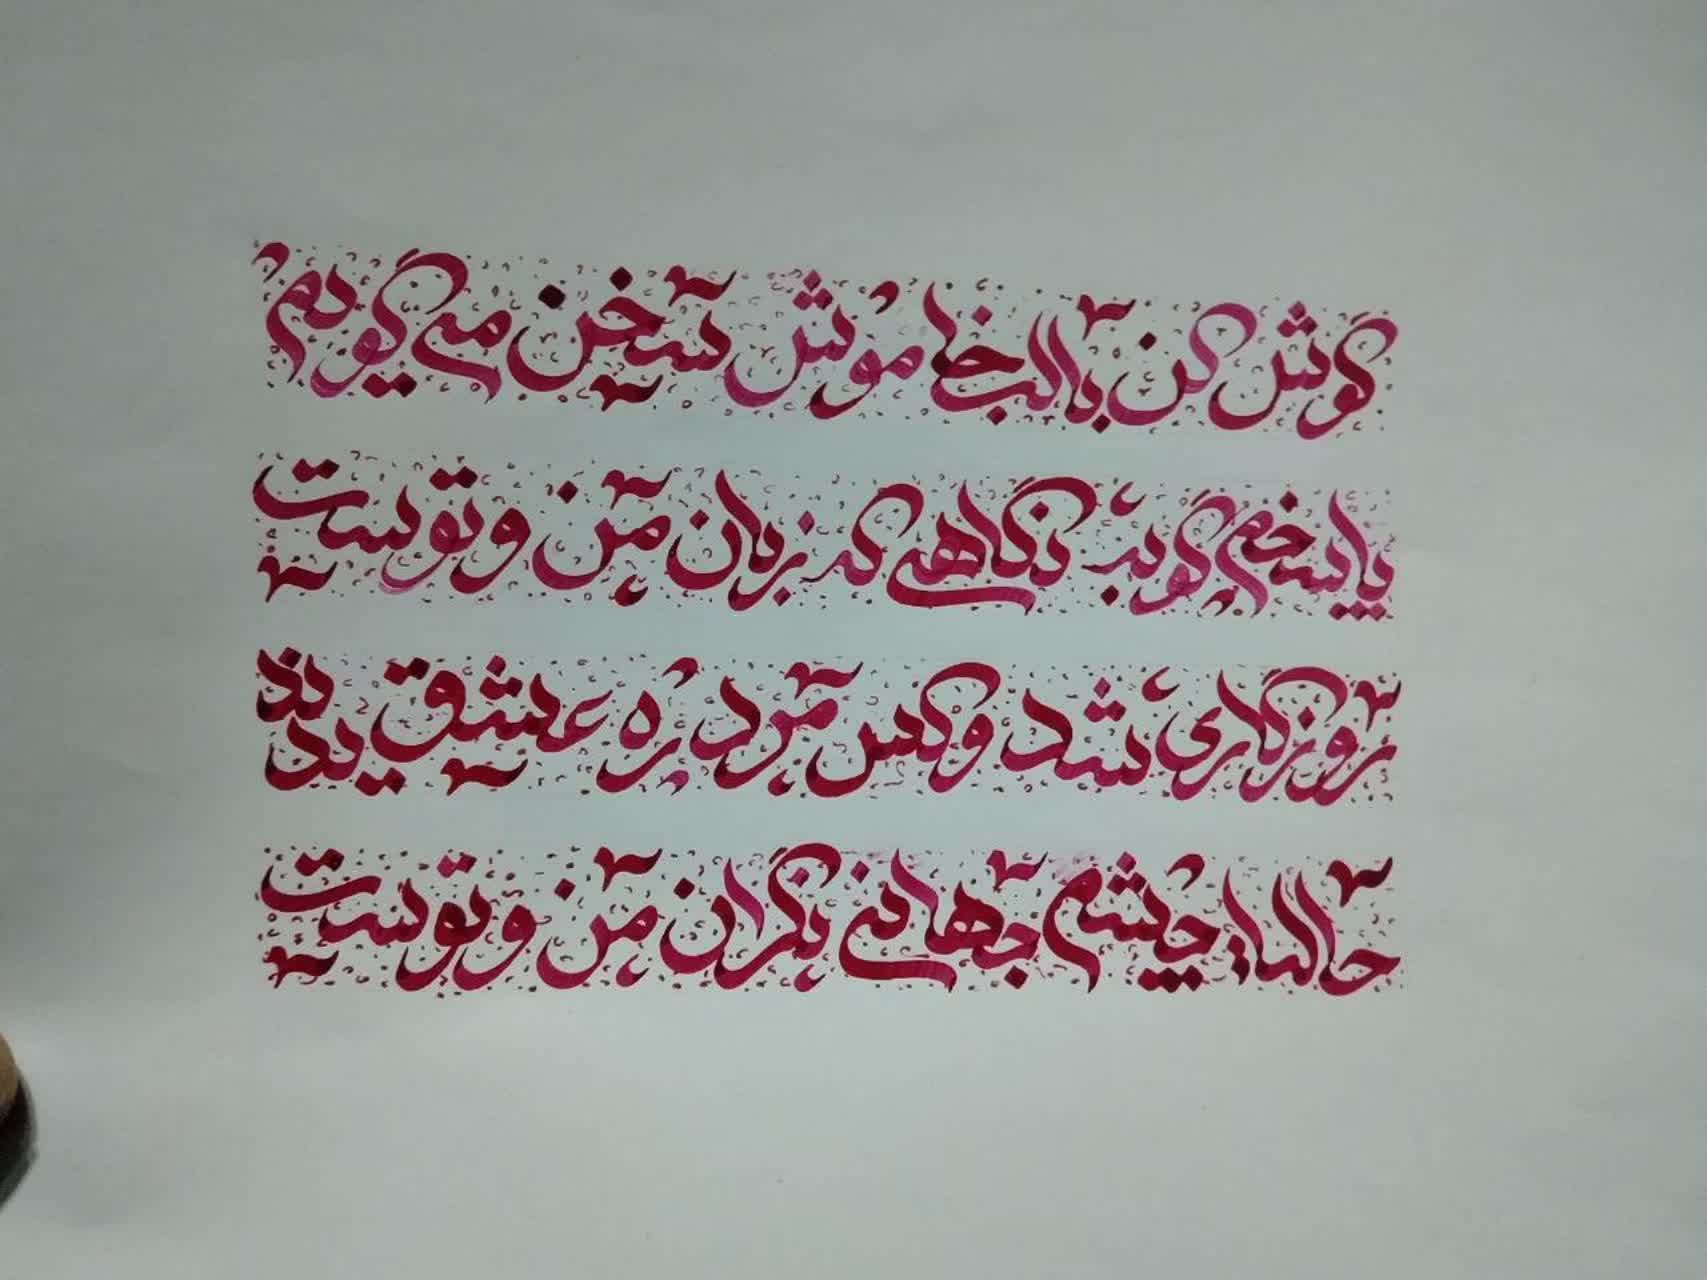 گوش کن با لب خاموش سخن می گویم
پاسخم گو به نگاهی که زبان من و توست
روزگاری شد و کس مرد ره عشق ندید
حالیا چشم جهانی نگران من و توست